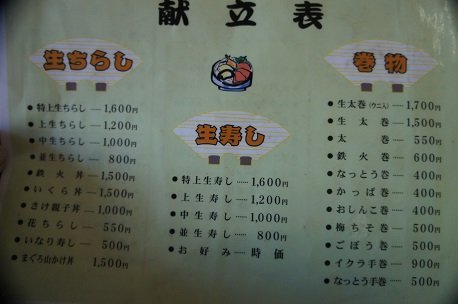 献立表
生ちらし
・特上生ちらし―1,600円
・上生ちらし―1,200円
・中生ちらし―1,000円
・並生ちらし―800円
・鉄火丼―1,500円
・いくら丼―1,500円
・さけ親子丼―1,000円
・花ちらし―550円
・いなり寿し―500円
・まぐろ山かけ丼 1,500円
生寿し
・特上生寿し……1,600円
・上生寿し……1,200円
・中生寿し……1,000円
・並生寿し……800円
・お好み……時価
巻物
・生太巻(ウニ入)…1,700円
・生太巻……1,500円
・太巻……550円
・鉄火巻……600円
・なっとう巻……400円
・かっぱ巻……400円
・おしんこ巻……400円
・梅ちそ巻……500円
・ごぼう巻……500円
・イクラ手巻……900円
・なっとう手巻……500円